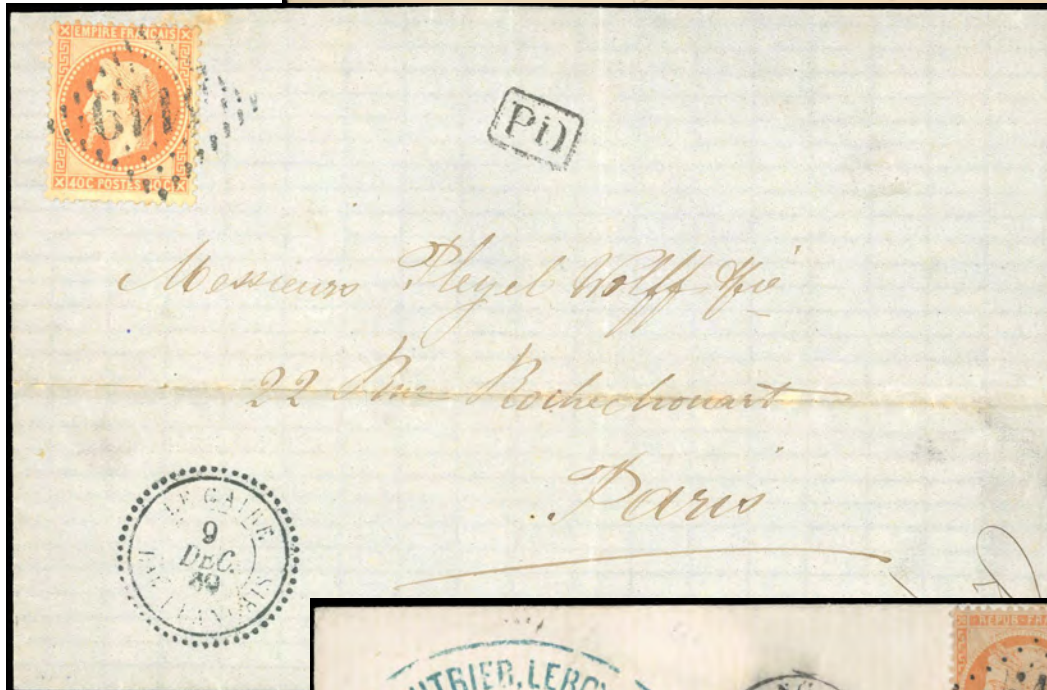 EMPIRE FRANÇAIS
40C POSTES 40C
PD
Messieurs Pleyel Wolff & Cie
22 Rue Rochechouart
Paris
LE CAIRE
9
DEC.
69
REPUB FRA
UTRIER, LERO